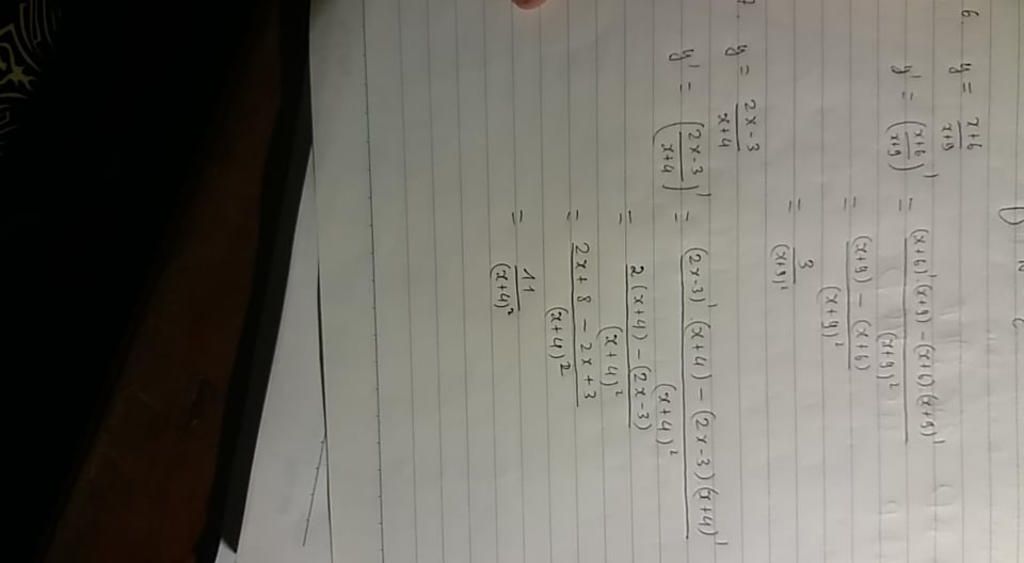 6. y = (x+6)/(x+9)
y' = ((x+6)/(x+9))' = ((x+6)'.(x+9) - (x+6)(x+9)')/(x+9)²
= ((x+9) - (x+6))/(x+9)²
= 3/(x+9)²
7. y = (2x-3)/(x+4)
y' = ((2x-3)/(x+4))' = ((2x-3)'.(x+4) - (2x-3)(x+4)')/(x+4)²
= (2(x+4) - (2x-3))/(x+4)²
= (2x+8 - 2x+3)/(x+4)²
= 11/(x+4)²